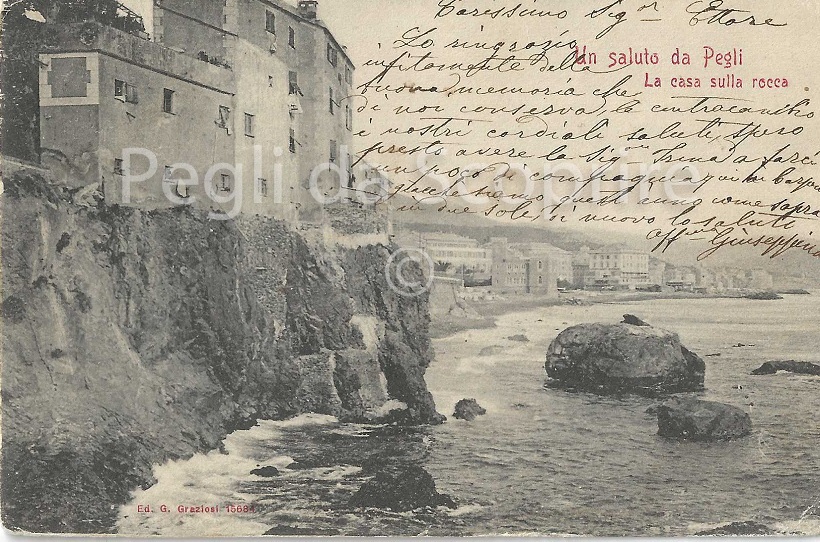 Carissimo Sig.r Ettore
Un saluto da Pegli
La casa sulla rocca
La ringrazio
infinitamente della
buona memoria che
di noi conserva, le contracambio
i nostri cordiali saluti, spero
presto avere la Sig.na Irma a farci
un poco di compagnia,
siamo quest'anno come sopra
in due sole, di nuovo la saluti
aff.ma Giuseppina
Pegli da Scoprire
©
Ed. G. Graziosi 15684